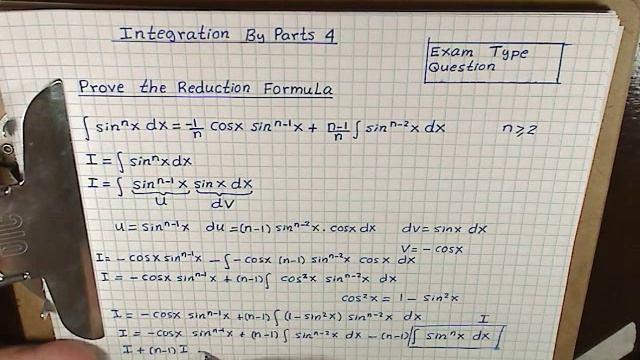 Integration By Parts 4
Exam Type
Question
Prove the Reduction Formula
∫ sinⁿx dx = -1/n cosx sinⁿ⁻¹x + n-1/n ∫ sinⁿ⁻²x dx n≥2
I = ∫ sinⁿx dx
I = ∫ sinⁿ⁻¹x sinx dx
u dv
u = sinⁿ⁻¹x du = (n-1) sinⁿ⁻²x . cosx dx dv = sinx dx
v = -cosx
I = -cosx sinⁿ⁻¹x - ∫ -cosx (n-1) sinⁿ⁻²x cosx dx
I = -cosx sinⁿ⁻¹x + (n-1) ∫ cos²x sinⁿ⁻²x dx
cos²x = 1 - sin²x
I = -cosx sinⁿ⁻¹x + (n-1) ∫ (1-sin²x) sinⁿ⁻²x dx
I
I = -cosx sinⁿ⁻¹x + (n-1) ∫ sinⁿ⁻²x dx - (n-1) ∫ sinⁿx dx
I + (n-1) I